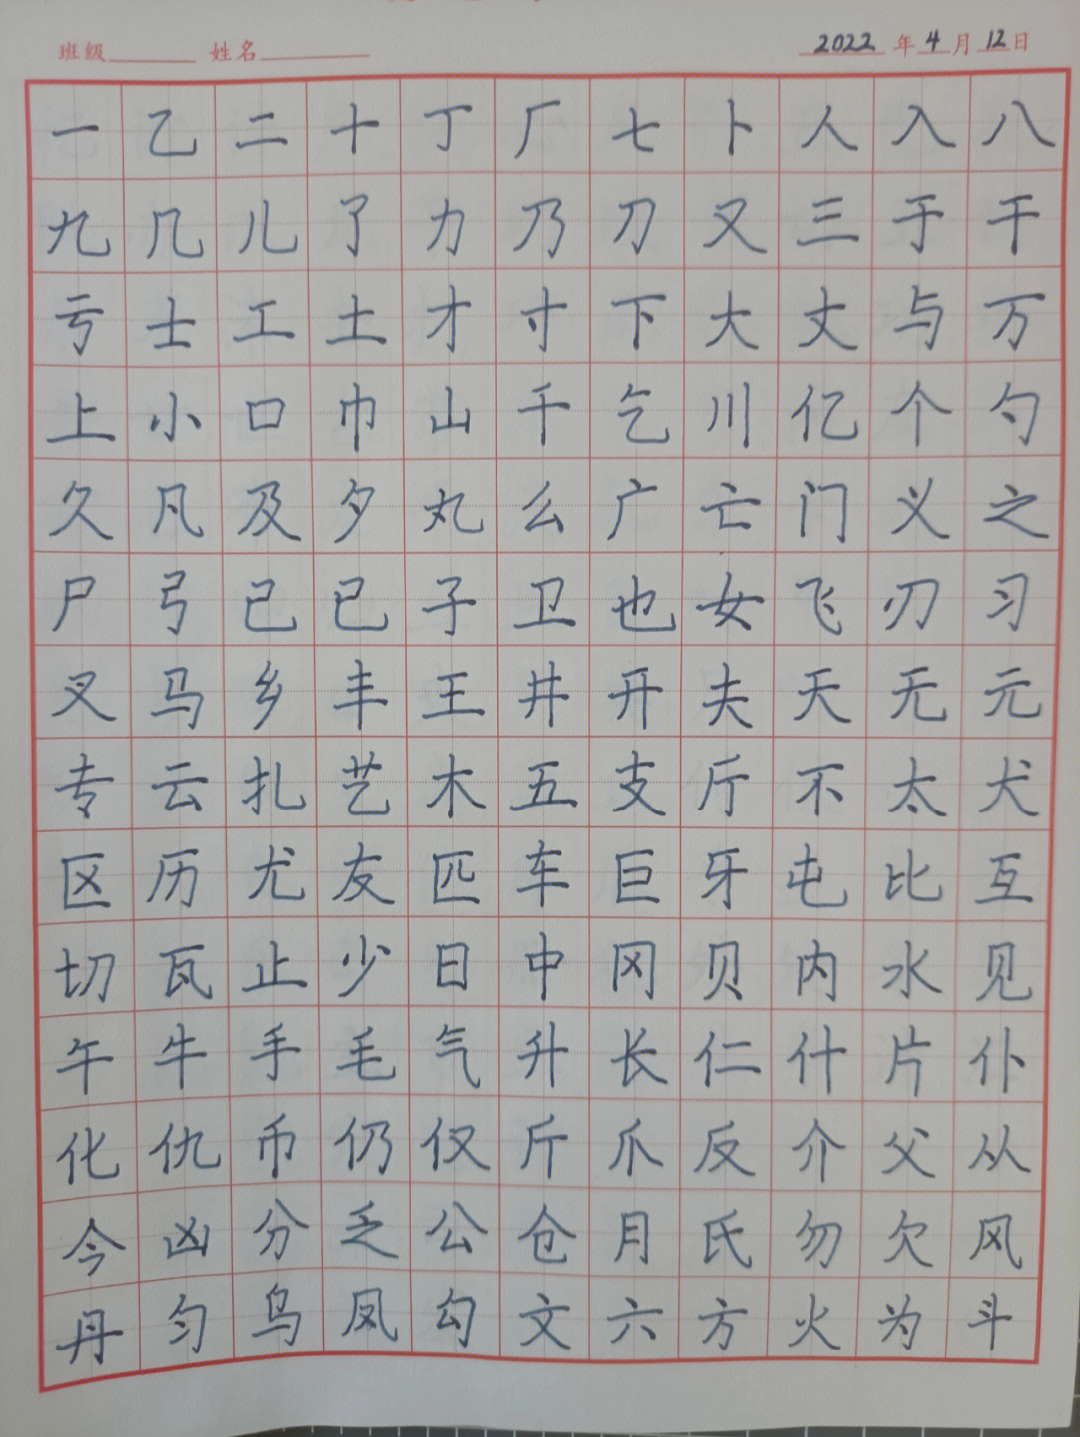 班级 姓名 2022年4月12日
一乙二十丁厂七卜人入八
九几儿了力乃刀又三于干
亏士工土才寸下大丈与万
上小口巾山千乞川亿个勺
久凡及夕丸么广亡门义之
尸弓己已子卫也女飞刃习
叉马乡丰王井开夫天无元
专云扎艺木五支斤不太犬
区历尤友匹车巨牙屯比互
切瓦止少日中冈贝内水见
午牛手毛气升长仁什片仆
化仇币仍仅斤爪反介父从
今凶分乏公仓月氏勿欠风
丹匀乌凤勾文六方火为斗